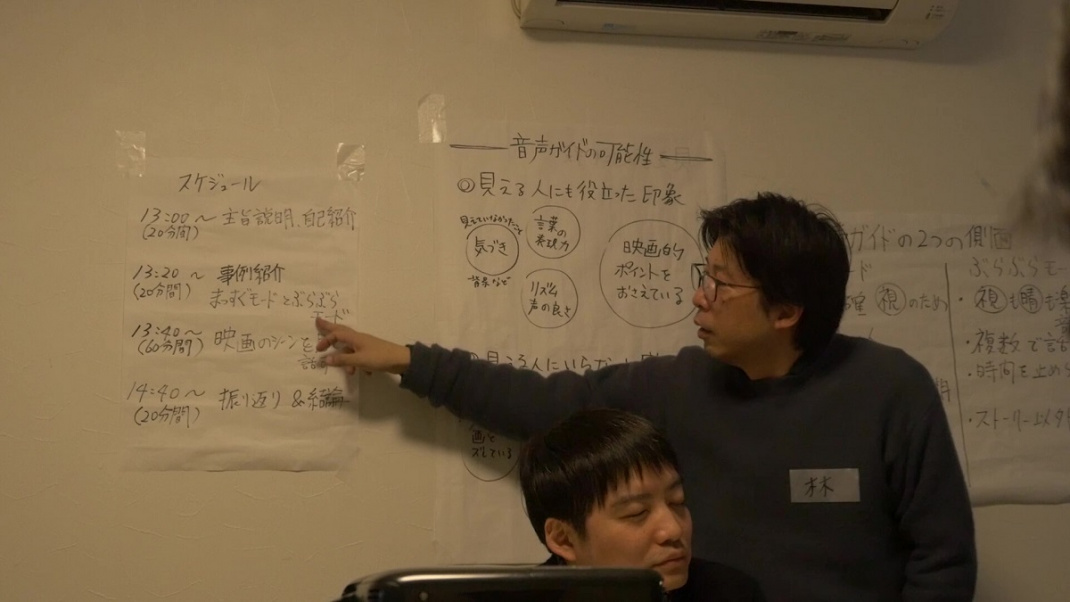 スケジュール
13:00～ 主旨説明、自己紹介
(20分間)
13:20～ 事例紹介
(20分間)
まっすぐモードとぶらぶら
モード
13:40～ 映画のシーンを
(60分間)
14:40～ 振り返り&結論
(20分間)
音声ガイドの可能性
◎見える人にも役立った印象
見えていなかったこと
気づき
背景など
言葉の
表現力
リズム
声の良さ
映画的
ポイントを
おさえている
見える人にいらない
画と
ズレている
ガイドの2つの側面
ド
視のため
ぶらぶらモー
・視も晴も楽
・複数で
・時間を止め
・ストーリー以外
林